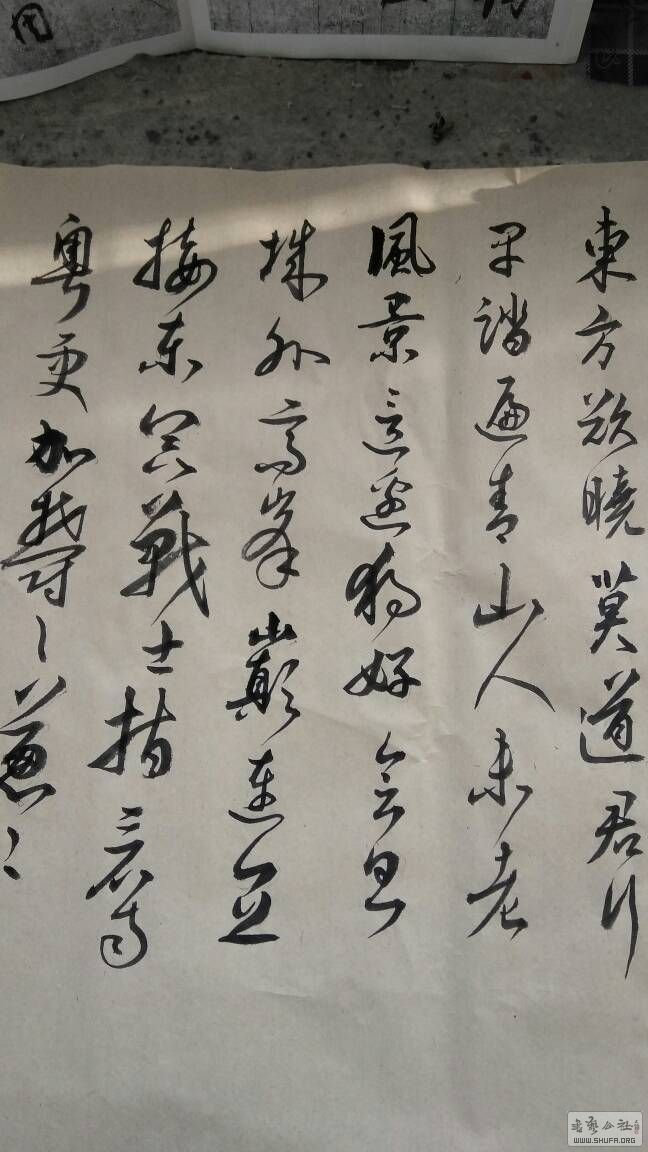 東方欲曉莫道君行
早踏遍青山人未老
風景這邊獨好會昌
城外高峰巔連直
接东冥戰士指看南
粵更加鬱々蔥々
书艺公社
WWW.SHUFA.ORG